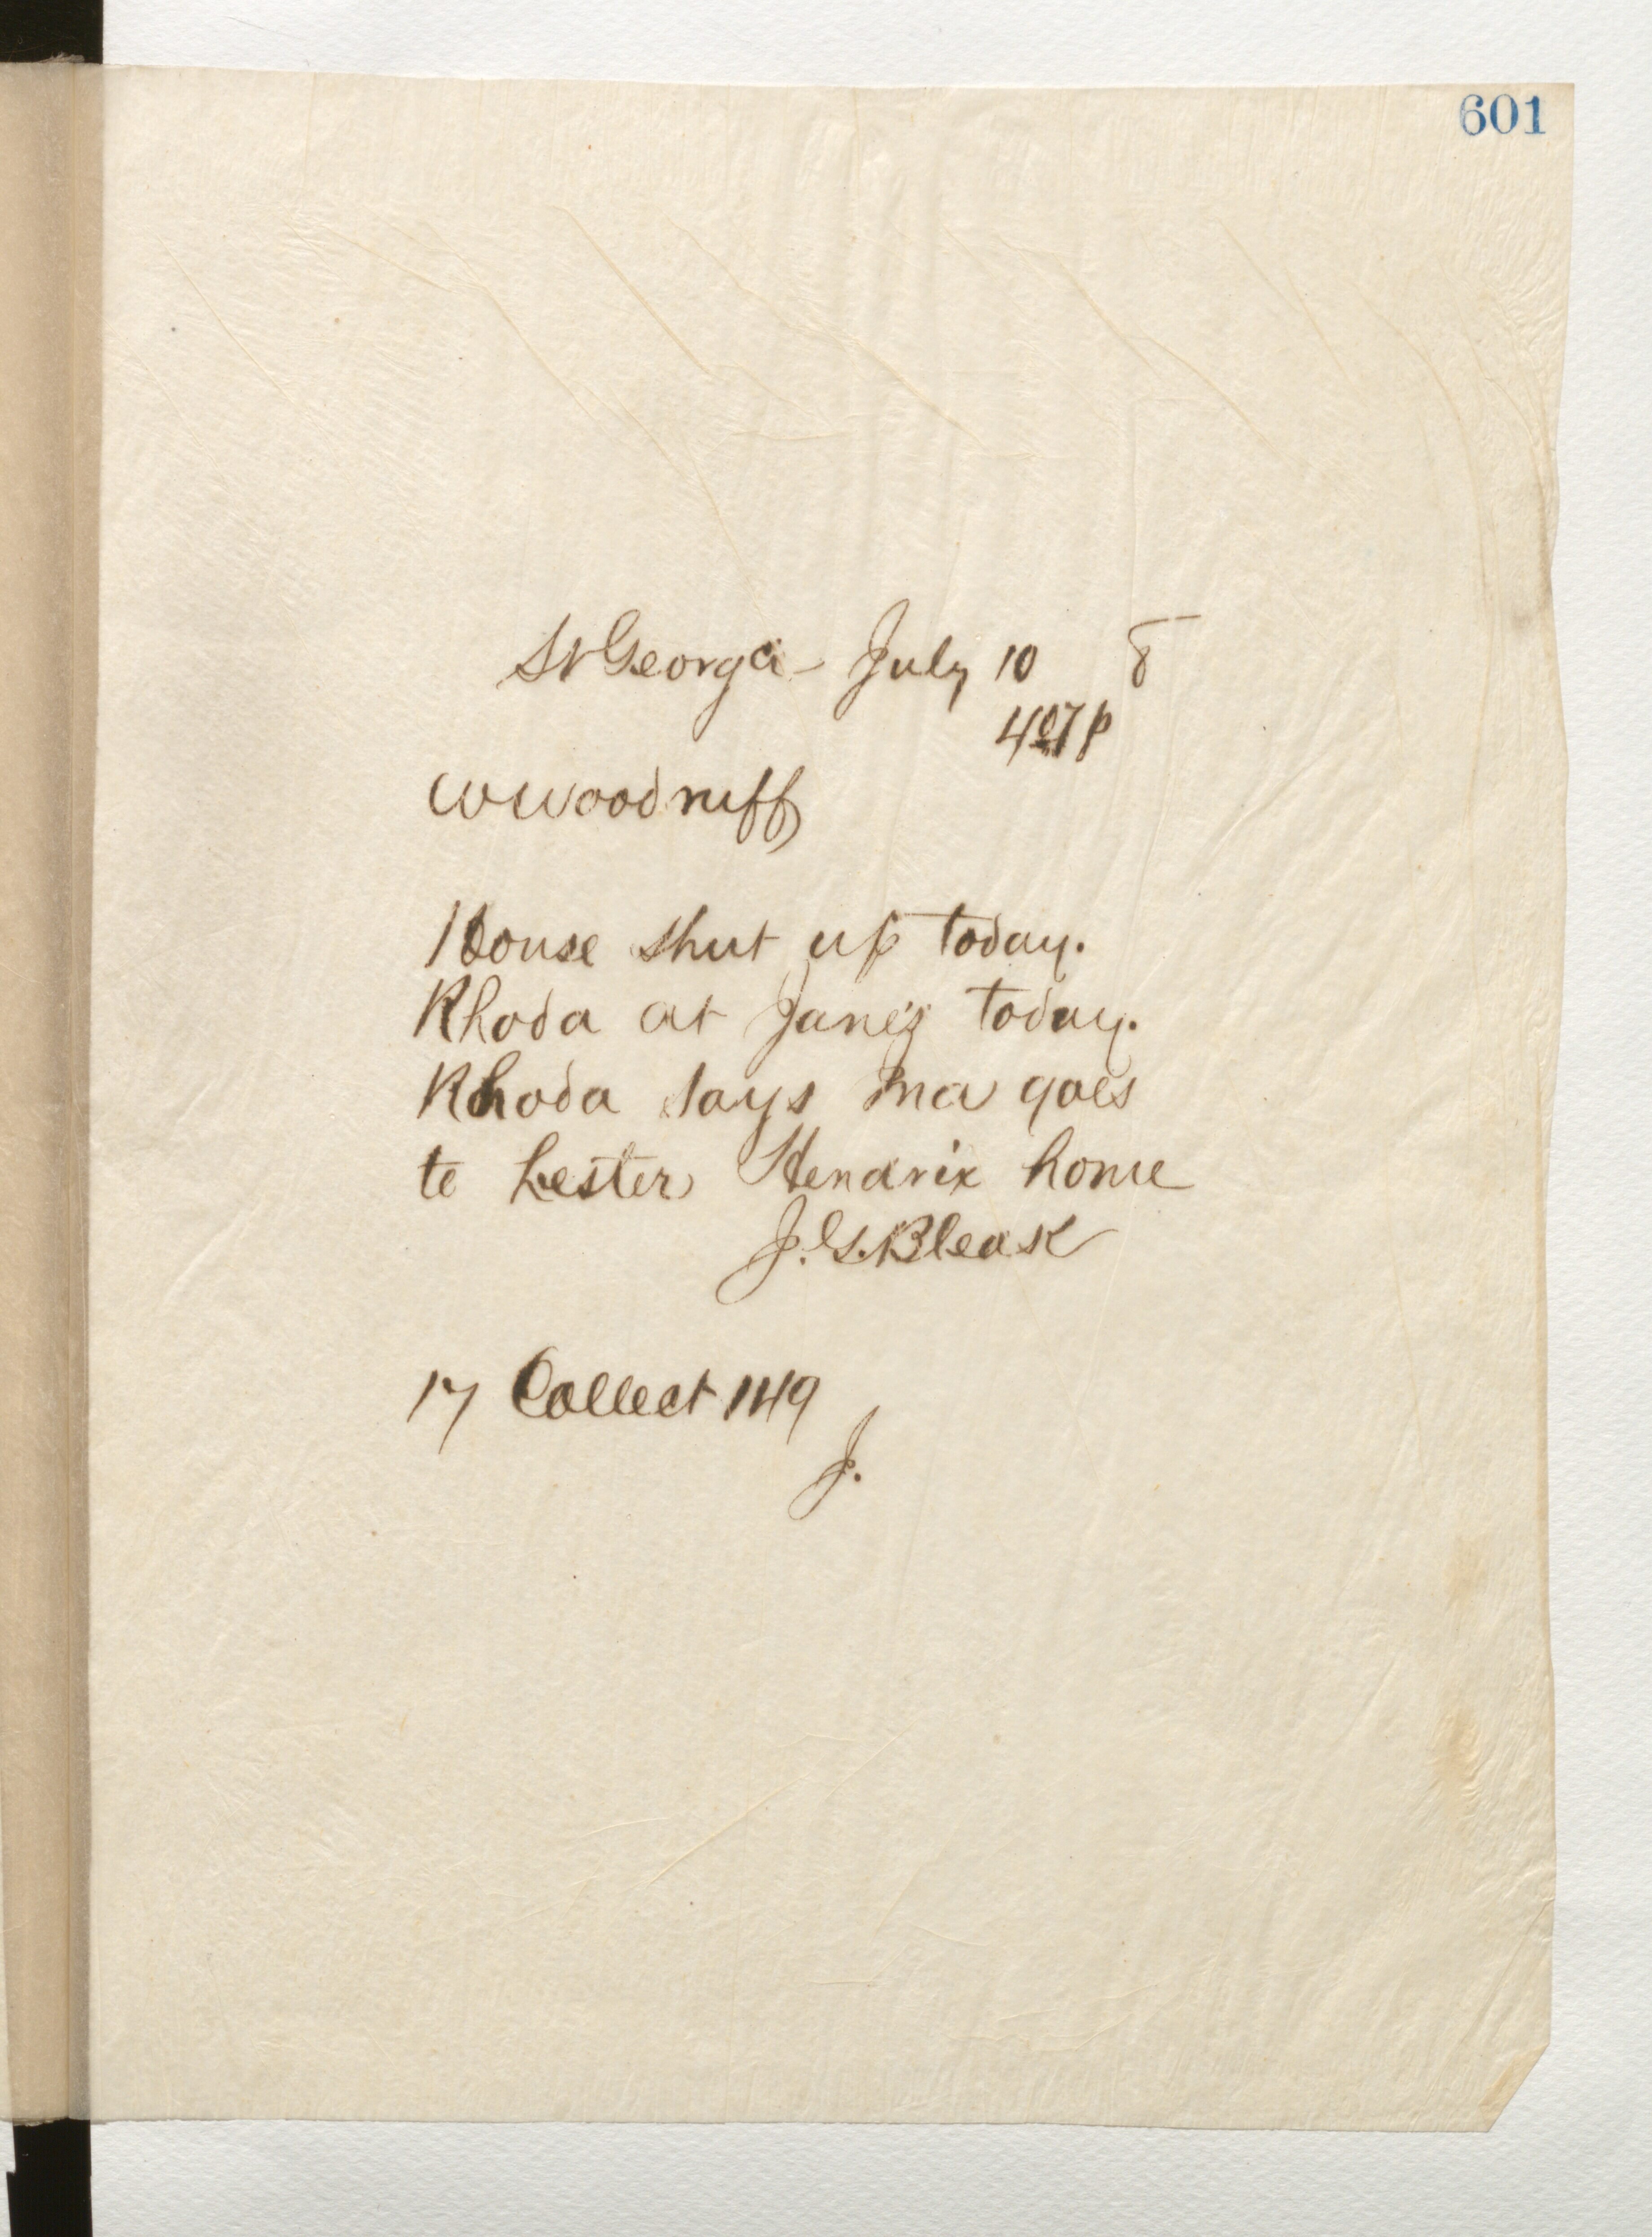 601
St George - July 10 8
407 P
W Woodruff
House shut up today.
Rhoda at Jane's today.
Rhoda says Ma goes
to Lester Hendrix home
J. G. Bleak
17 Collect 149
J.